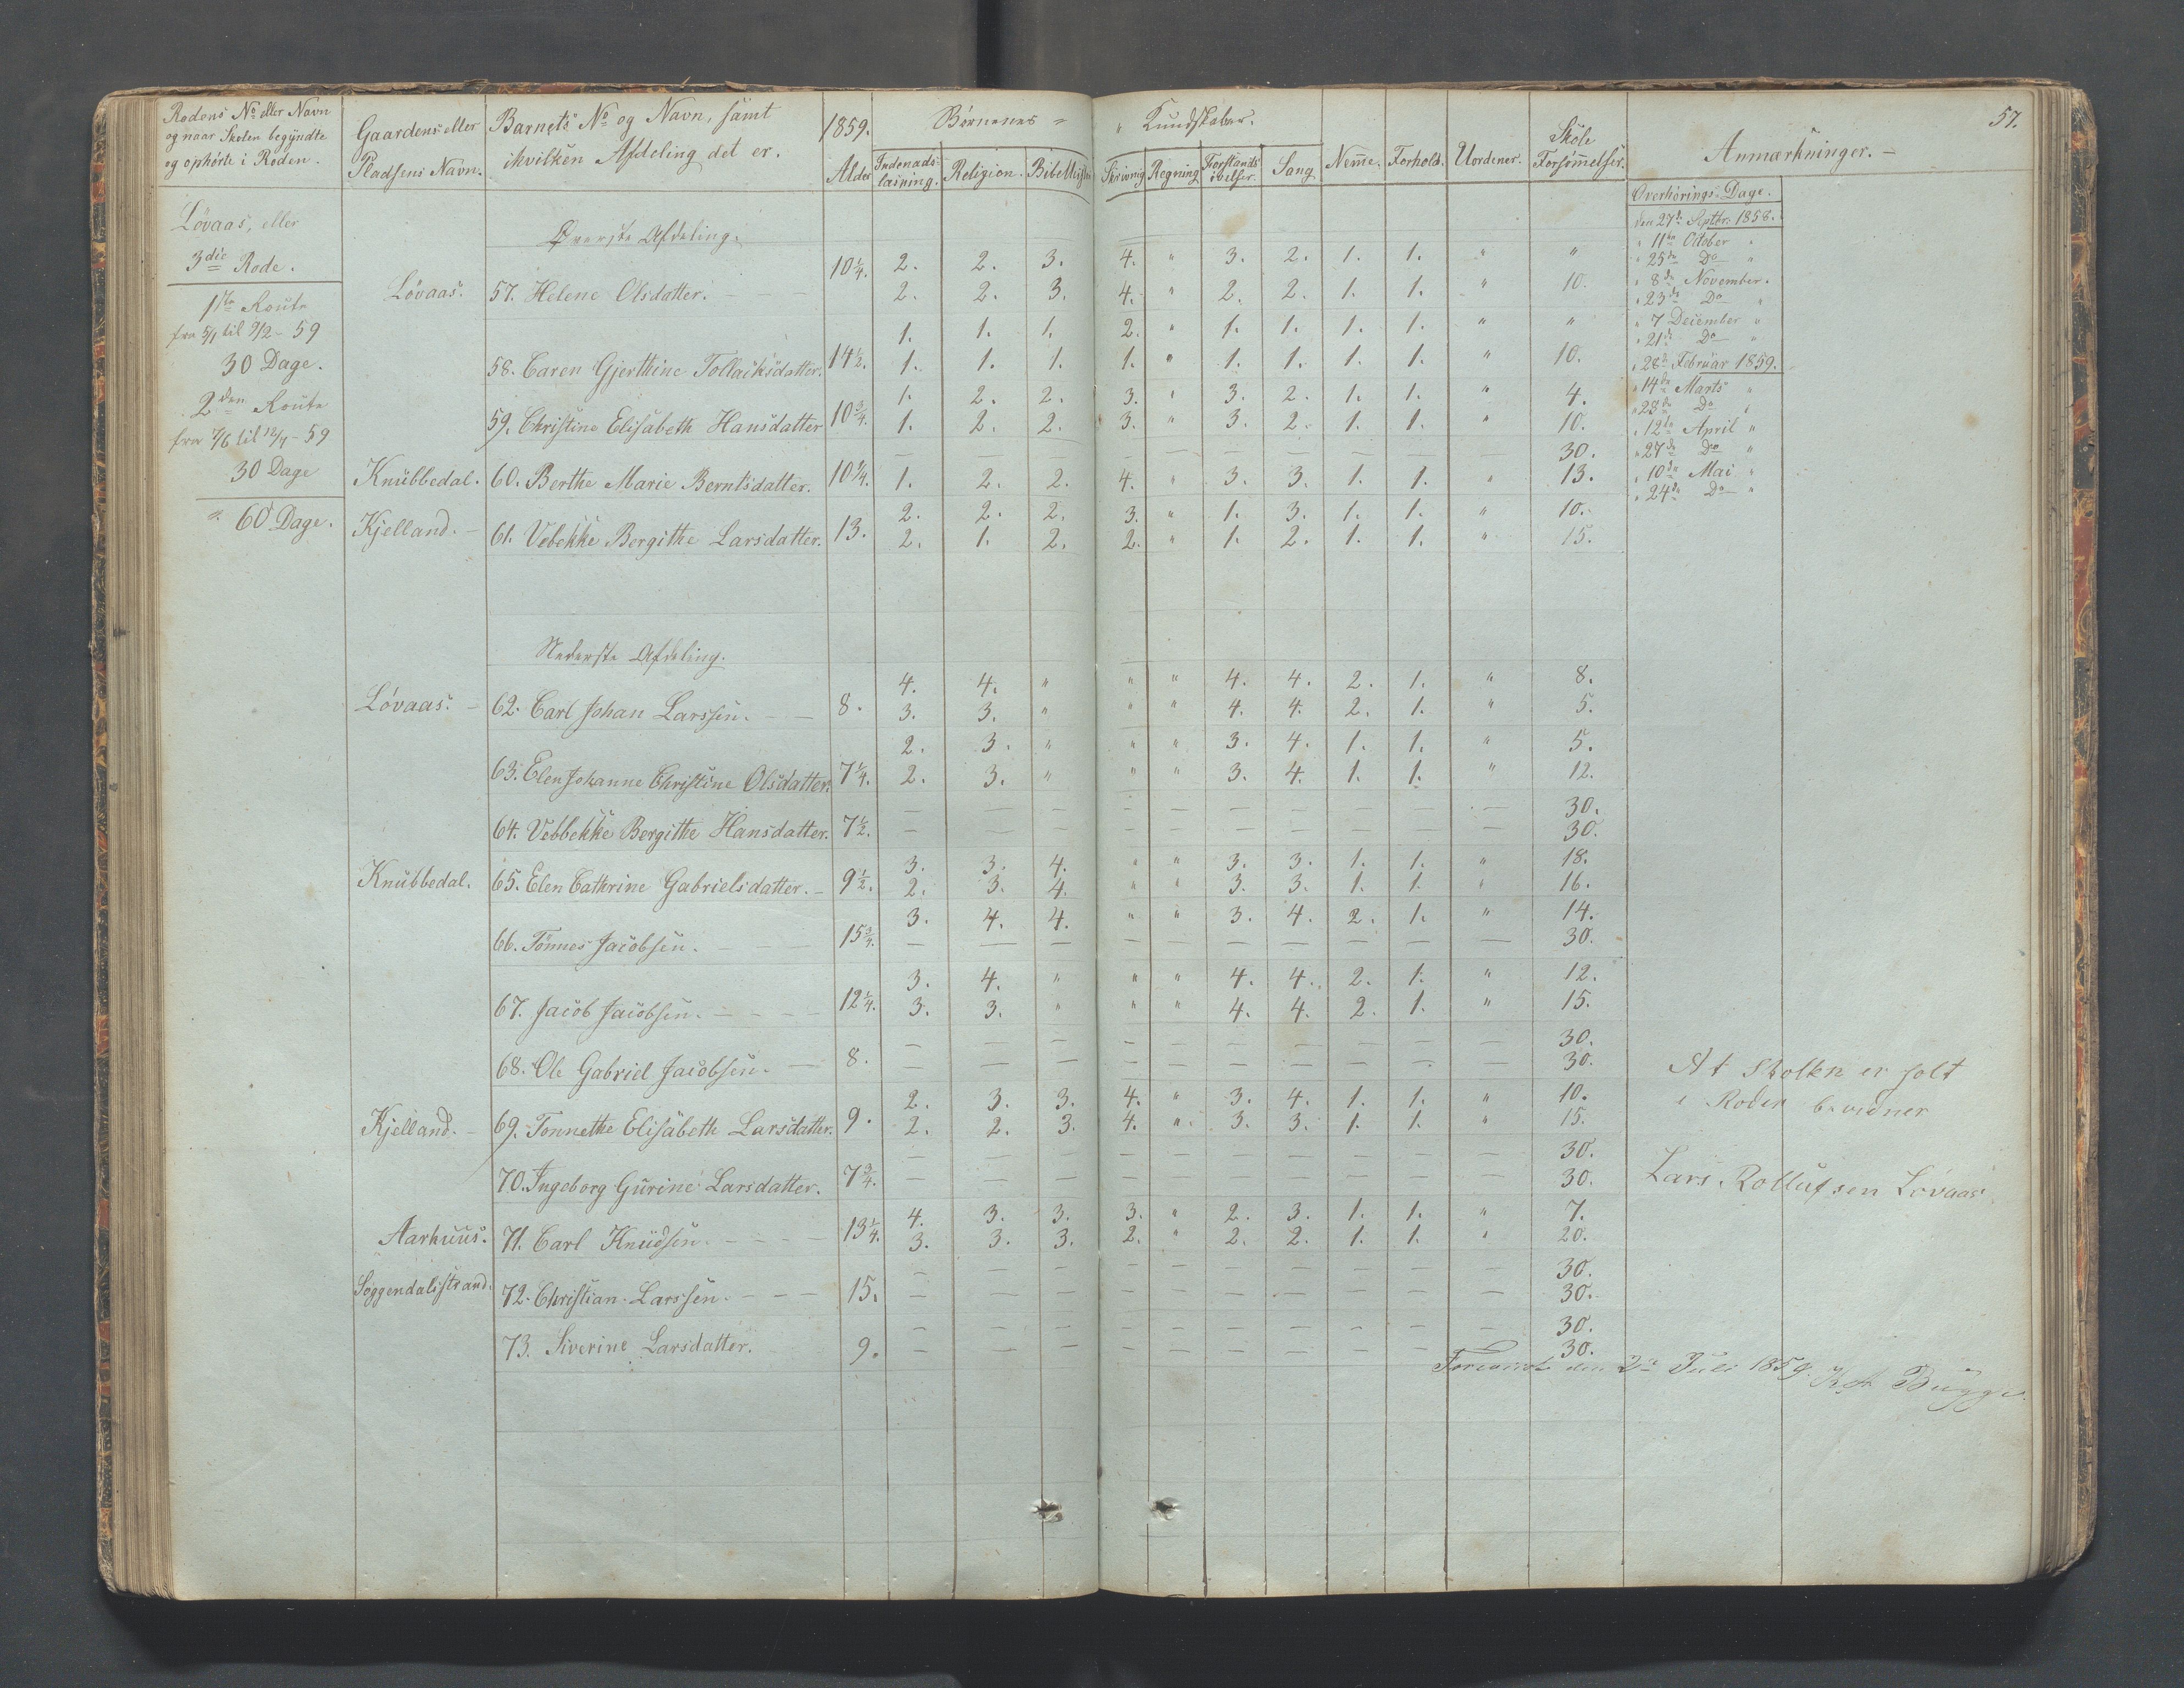 57.
Rodens No eller Navn og naar Skolen begyndte og ophørte i Roden.
Gaardens eller Pladsens Navn.
Barnets No og Navn, samt ihvilken Afdeling det er.
1859. Alder
Børnenes "
" Kundskaber.
Indenads-læsning. Religion. Bibelhistorie Skrivnig Regning Forstands øvelser. Sang Nem̄e. Forhold. Uordener. Skole Forsøm̄elser. Anmærkninger. —
Løvaas, eller
3die Rode.
1ste Route
fra 5/1 til 9/2 – 59
30 Dage.
2den Route
30 Dage
60 Dage.
Overhørings-Dage.
den 27de Septbr. 1858.
" 11te October "
" 25de Do "
" 8de November "
" 23de Do "
" 7 December "
" 21de Do "
" 28de Februar 1859.
" 14de Marts "
" 28de Do "
" 12te April "
" 27de Do "
" 10de Mai "
" 24de Do "
Øverste Afdeling.
2. 2. 3. 4. " 3. 2. 1. 1. " "
Løvaas. 57. Helene Olsdatter. 10¼. 2. 2. 3. 4. " 2. 2. 1. 1. " 10.
1. 1. 1. 2. " 1. 1. 1. 1. " "
58. Caren Gjerthine Tollacksdatter. 14½. 1. 1. 1. 1. " 1. 1. 1. 1. " 10.
1. 2. 2. 3. " 3. 2. 1. 1. " 4.
59. Christine Elisabeth Hansdatter 10¾. 1. 2. 2. 3. " 3. 2. 1. 1. " 10.
— — — — — — — — — — 30.
Knubbedal. 60. Berthe Marie Berntsdatter. 10¼. 1. 2. 2. 4. " 3. 3. 1. 1. " 13.
2. 2. 2. 3. " 1. 3. 1. 1. " 10.
Kjelland. — 61. Vebekke Bergithe Larsdatter. 13. 2. 1. 2. 2. " 1. 2. 1. 1. " 15.
Nederste Afdeling.
4. 4. " " " 4. 4. 2. 1. " 8.
Løvaas. — 62. Carl Johan Larssen. — — 8. 3. 3. " " " 4. 4. 2. 1. " 5.
2. 3. " " " 3. 4. 1. 1. " 5.
63. Elen Johanne Christine Olsdatter. 7¼. 2. 3. " " " 3. 4. 1. 1. " 12.
— — — — — — — — — — — 30.
64. Vebbekke Bergithe Hansdatter. 7½. — — — — — — — — — — — 30.
3. 3. 4. " " 3. 3. 1. 1. " 18.
Knubbedal. 65. Elen Cathrine Gabrielsdatter. — 9½. 2. 3. 4. " " 3. 3. 1. 1. " 16.
3. 4. 4. " " 3. 4. 2. 1. " 14.
66. Tønnes Jacobsen. — — — 15¾. — — — — — — — — — — — 30.
3. 4. " " " 4. 4. 2. 1. " 12.
67. Jacob Jacobsen. — — — — 12¼. 3. 3. " " " 4. 4. 2. 1. " 15.
— — — — — — — — — — — 30.
68. Ole Gabriel Jacobsen. — 8. — — — — — — — — — — — 30.
2. 3. 3. 4. " 3. 4. 1. 1. " 10.
Kjelland. — 69. Tonnethe Elisabeth Larsdatter. 9. 2. 2. 3. 4. " 3. 3. 1. 1. " 15.
— — — — — — — — — — — 30.
70. Ingeborg Gurine Larsdatter. 7¾. — — — — — — — — — — — 30.
4. 3. 3. 3. " 2. 3. 1. 1. " 7.
Aarhuus. 71. Carl Knudsen. — — — 13¼. 3. 3. 3. 2. " 2. 2. 1. 1. " 20.
— — — — — — — — — — — 30.
Soggendalsstrand. 72. Christian Larssen. — — — 15. — — — — — — — — — — — 30.
— — — — — — — — — — — 30.
73. Siverine Larsdatter. 9. — — — — — — — — — — — 30.
At Skolen er holt
i Roden bevidner
Lars Rollufsen Løvaas
Foreviist den 2den Juli 1859. Bugge